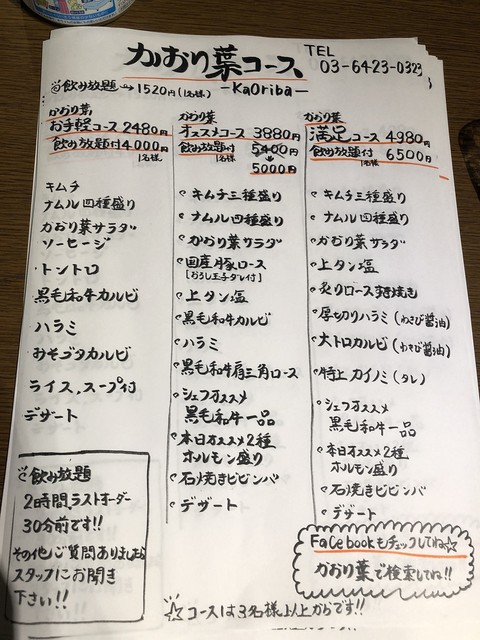 かおり葉コース
TEL
03-6423-0323
飲み放題→1520円(1名様)
-KaOriba-
かおり葉
お手軽コース2480円
飲み放題付4000円
1名様
キムチ
ナムル四種盛り
かおり葉サラダ
ソーセージ
トントロ
黒毛和牛カルビ
ハラミ
みそブタカルビ
ライス、スープ付
デザート
かおり葉
オススメコース3880円
飲み放題付5400円
1名様
5000円
キムチ三種盛り
ナムル四種盛り
かおり葉サラダ
国産豚ロース
[おろし玉子ダレ付]
上タン塩
黒毛和牛カルビ
ハラミ
黒毛和牛肩三角ロース
シェフオススメ
黒毛和牛一品
本日オススメ2種
ホルモン盛り
石焼きビビンバ
デザート
かおり葉
満足コース4980円
飲み放題付6500円
1名様
キムチ三種盛り
ナムル四種盛り
かおり葉サラダ
上タン塩
炙りロースすき焼き
厚切りハラミ(わさび醤油)
大トロカルビ(わさび醤油)
特上カイノミ(タレ)
シェフオススメ
黒毛和牛一品
本日オススメ2種
ホルモン盛り
石焼きビビンバ
デザート
飲み放題
2時間、ラストオーダー
30分前です!!
その他ご質問ありましたら
スタッフにお聞き
下さい!!
Facebookもチェックしてね☆
かおり葉で検索してね!!
☆コースは3名様以上からです!!